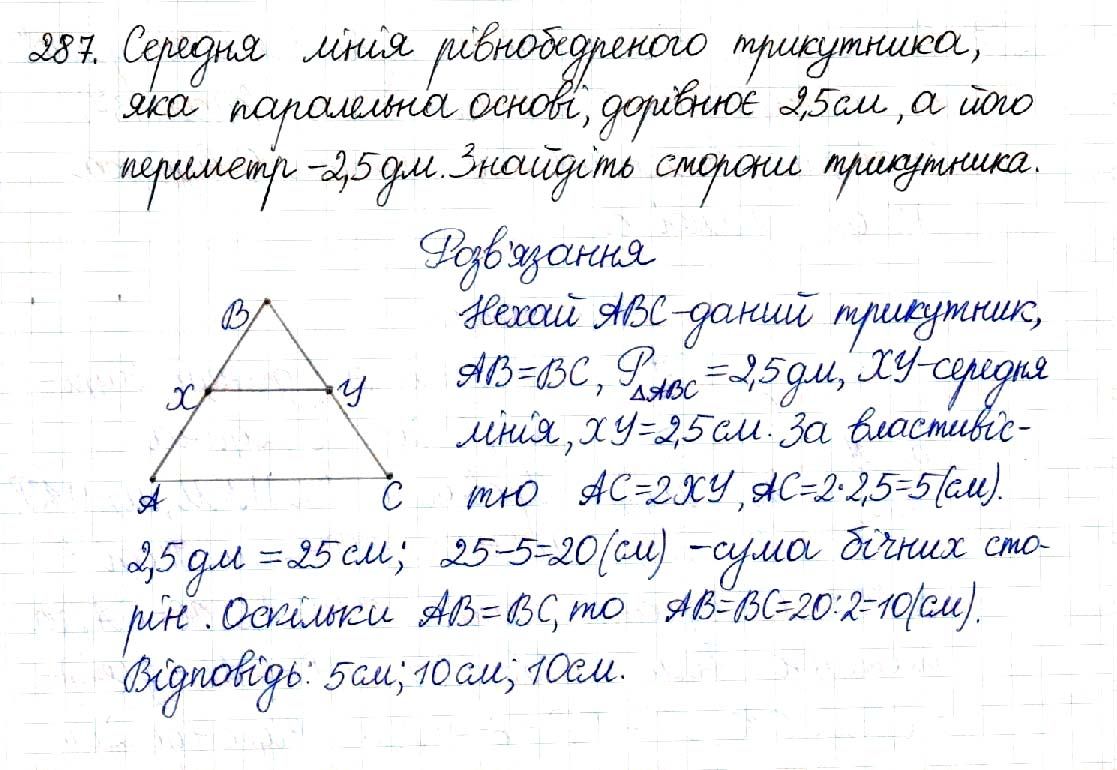 287. Середня лінія рівнобедреного трикутника,
яка паралельна основі, дорівнює 2,5 см, а його
периметр – 2,5 дм. Знайдіть сторони трикутника.
Розв'язання
B
X
У
A
C
Нехай АВС – даний трикутник,
АВ = ВС, Р△АВС = 2,5 дм, ХУ – середня
лінія, ХУ = 2,5 см. За властивіс-
тю АС = 2ХУ, АС = 2·2,5 = 5 (см).
2,5 дм = 25 см; 25 – 5 = 20 (см) – сума бічних сто-
рін. Оскільки АВ = ВС, то АВ = ВС = 20:2 = 10 (см).
Відповідь: 5 см; 10 см; 10 см.